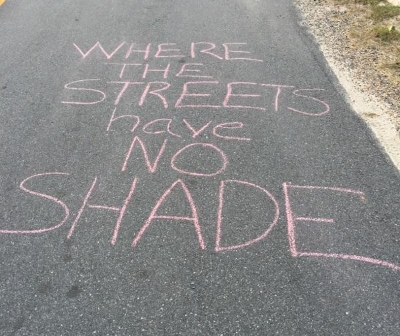 WHERE
THE
STREETS
have
NO
SHADE